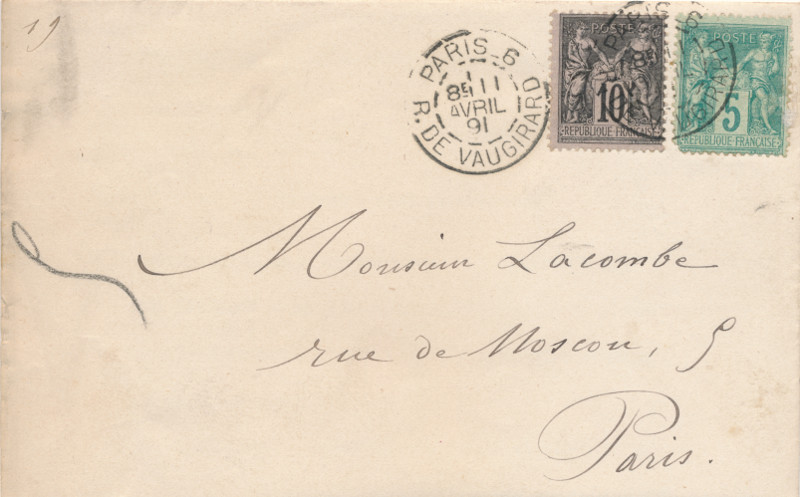 19
PARIS_6
8E 11
AVRIL
91
R. DE VAUGIRARD
POSTE
10
REPUBLIQUE FRANÇAISE
POSTE
5
REPUBLIQUE FRANÇAISE
Monsieur Lacombe
rue de Moscou, 5
Paris.